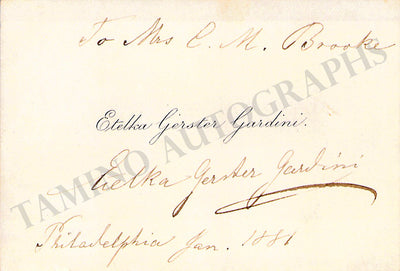 To Mrs C. M. Brooke
Etelka Gerster Gardini.
Etelka Gerster Gardini
Philadelphia Jan. 1881
TAMINO AUTOGRAPHS